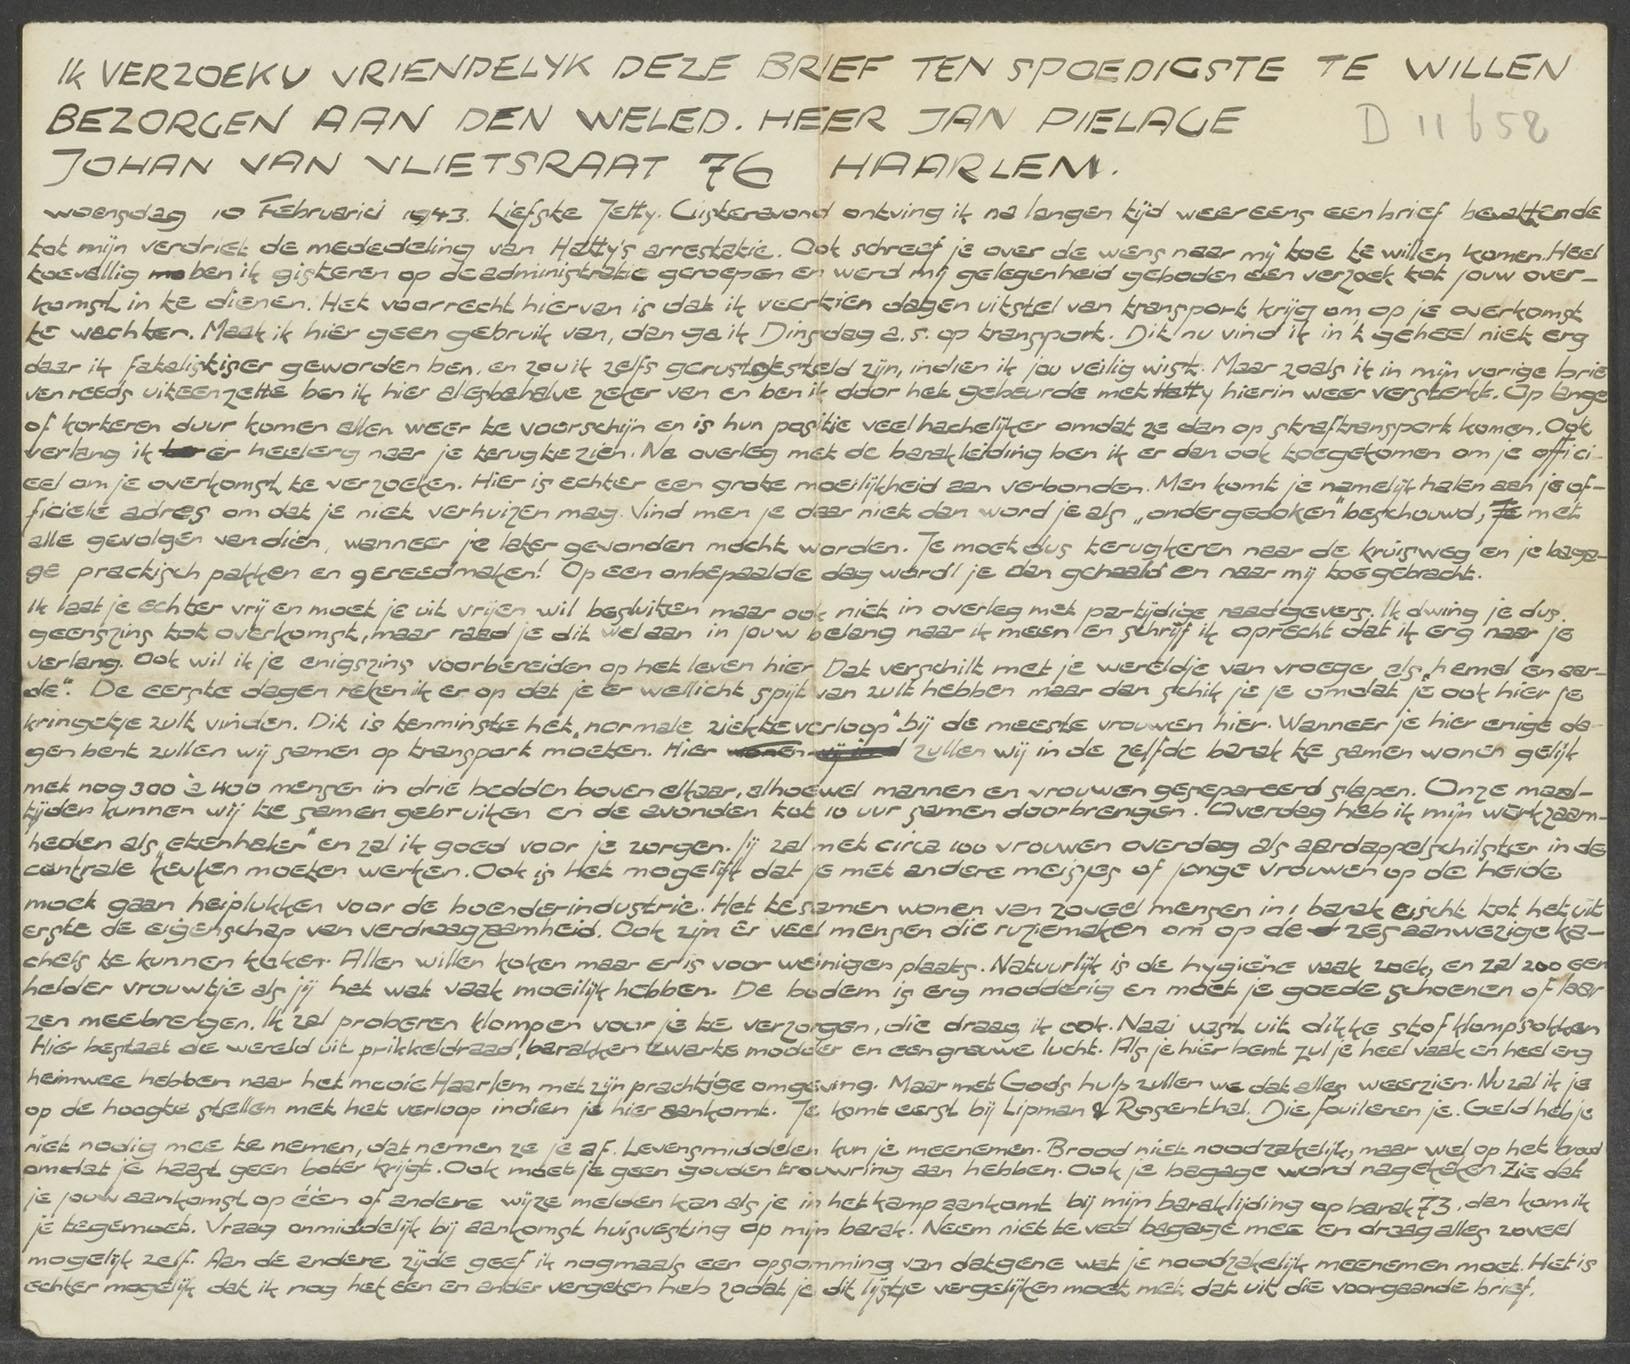 IK VERZOEK U VRIENDELYK DEZE BRIEF TEN SPOEDIGSTE TE WILLEN
BEZORGEN AAN DEN WELED. HEER JAN PIELAGE
D 11658
JOHAN VAN VLIETSRAAT 76 HAARLEM.
woensdag 10 Februarie 1943. Liefste Jetty. Gisteravond ontving ik na langen tijd weer eens een brief bevattende
tot mijn verdriet de mededeling van Hatty's arrestatie. Ook schreef je over de wens naar mij toe te willen komen. Heel
toevallig ben ik gisteren op de administratie geroepen en werd mij gelegenheid geboden een verzoek tot jouw over-
komst in te dienen. Het voorrecht hiervan is dat ik veertien dagen uitstel van transport krijg om op je overkomst
te wachten. Maak ik hier geen gebruik van, dan ga ik Dinsdag a.s. op transport. Dit nu vind ik in 't geheel niet erg
daar ik fatalistiser geworden ben, en zou ik zelfs gerustgesteld zijn, indien ik jou veilig wist. Maar zoals ik in mijn vorige brie
ven reeds uiteenzette ben ik hier alesbehalve zeker van en ben ik door het gebeurde met Hatty hierin weer versterkt. Op lange
of korteren duur komen allen weer te voorschijn en is hun positie veel hachelijker omdat ze dan op straftransport komen. Ook
verlang ik er heel erg naar je terug te zien. Na overleg met de barakleiding ben ik er dan ook toegekomen om je offici-
eel om je overkomst te verzoeken. Hier is echter een grote moeilijkheid aan verbonden. Men komt je namelijk halen aan je of-
ficiele adres omdat je niet verhuizen mag. Vind men je daar niet dan word je als „ondergedoken" beschouwd, met
alle gevolgen vandien, wanneer je later gevonden mocht worden. Je moet dus terugkeren naar de kruisweg en je baga-
ge practisch pakken en gereedmaken! Op een onbepaalde dag word je dan gehaald en naar mij toegebracht.
Ik laat je echter vrij en moet je uit vrijen wil besluiten maar ook niet in overleg met partijdige raadgevers. Ik dwing je dus
geenszins tot overkomst, maar raad je dit wel aan in jouw belang naar ik meen en schrijf ik oprecht dat ik erg naar je
verlang. Ook wil ik je enigszins voorbereiden op het leven hier. Dat verschilt met je wereldje van vroeger als „hemel en aar-
de". De eerste dagen reken ik er op dat je er wellicht spijt van zult hebben maar dan schik je je omdat je ook hier je
kringetje zult vinden. Dit is tenminste het „normale ziekteverloop" bij de meeste vrouwen hier. Wanneer je hier enige da-
gen bent zullen wij samen op transport moeten. Hier zullen wij in de zelfde barak te samen wonen gelijk
met nog 300 à 400 mensen in drie bedden boven elkaar, alhoewel mannen en vrouwen gesepareerd slapen. Onze maal-
tijden kunnen wij te samen gebruiken en de avonden tot 10 uur samen doorbrengen. Overdag heb ik mijn werkzaam-
heden als „etenhaler" en zal ik goed voor je zorgen. Jij zal met circa 100 vrouwen overdag als aardappelschilster in de
centrale keuken moeten werken. Ook is het mogelijk dat je met andere meisjes of jonge vrouwen op de heide
moet gaan heiplukken voor de boenderindustrie. Het te samen wonen van zoveel mensen in 1 barak eischt tot het uit
erste de eigenschap van verdraagzaamheid. Ook zijn er veel mensen die ruziemaken om op de zes aanwezige ka-
chels te kunnen koken. Allen willen koken maar er is voor weinigen plaats. Natuurlijk is de hygiëne vaak zoek, en zal zoo een
helder vrouwtje als jij het wat vaak moeilijk hebben. De bodem is erg modderig en moet je goede schoenen of laar
zen meebrengen. Ik zal proberen klompen voor je te verzorgen, die draag ik ook. Naai vast uit dikke stof klompsokken
Hier bestaat de wereld uit prikkeldraad, barakken zwarte modder en een grauwe lucht. Als je hier bent zul je heel vaak en heel erg
heimwee hebben naar het mooie Haarlem met zijn prachtige omgeving. Maar met Gods hulp zullen we dat alles weerzien. Nu zal ik je
op de hoogte stellen met het verloop indien je hier aankomt. Je komt eerst bij Lipman & Rosenthal. Die fouilleren je. Geld heb je
niet nodig mee te nemen, dat nemen ze je af. Levensmiddelen kun je meenemen. Brood niet noodzakelijk, maar wel op het brood
omdat je haast geen boter krijgt. Ook moet je geen gouden trouwring aan hebben. Ook je bagage word nagekeken. Zie dat
je jouw aankomst op één of andere wijze melden kan als je in het kamp aankomt bij mijn barakleiding op barak 73, dan kom ik
je tegemoet. Vraag onmiddelijk bij aankomst huisvesting op mijn barak. Neem niet te veel bagage mee en draag alles zoveel
mogelijk zelf. Aan de andere zijde geef ik nogmaals een opsomming van datgene wat je noodzakelijk meenemen moet. Het is
echter mogelijk dat ik nog het één en ander vergeten heb zodat je dit lijstje vergelijken moet met dat uit die voorgaande brief.